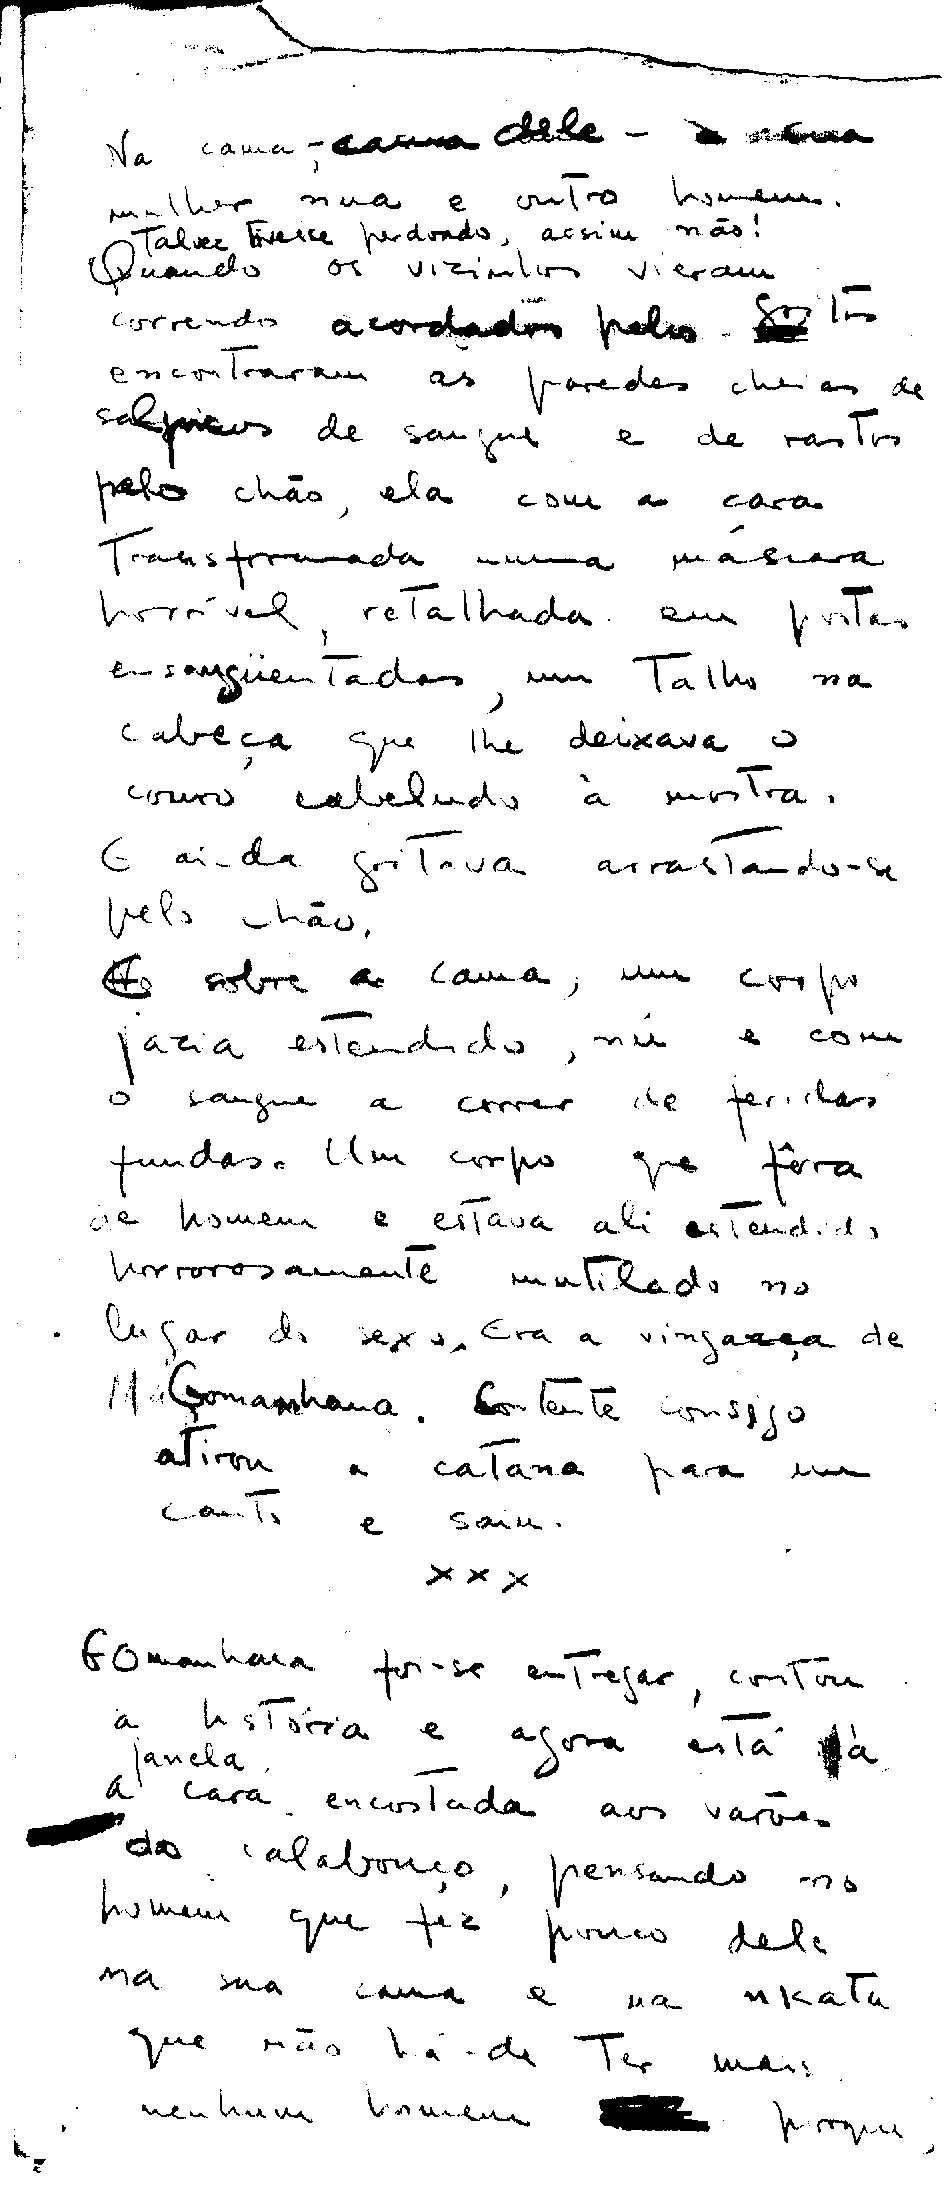 Na cama, - cama dele - a sua
mulher nua e outro homem.
Talvez tivesse perdoado, assim não!
Quando os vizinhos vieram
correndo acordados pelos gritos
encontraram as paredes cheias de
salpicos de sangue e de rastos
pelo chão, ela com a cara
transformada numa máscara
horrível, retalhada em postas
ensangüentadas, um talho na
cabeça que lhe deixava o
couro cabeludo à mostra.
E ainda gritava arrastando-se
pelo chão.
E sobre a cama, um corpo
jazia estendido, nú e com
o sangue a correr de feridas
fundas. Um corpo que fôra
de homem e estava ali estendido
horrorosamente mutilado no
lugar do sexo. Era a vingança de
Gomanhana. Contente consigo
atirou a catana para um
canto e saiu.
x x x
Gomanhana foi-se entregar, contou
a história e agora está à
janela
a cara encostada aos varões
do calabouço, pensando no
homem que fez pouco dele
na sua cama e na nkata
que não há-de ter mais
nenhum homem porque,